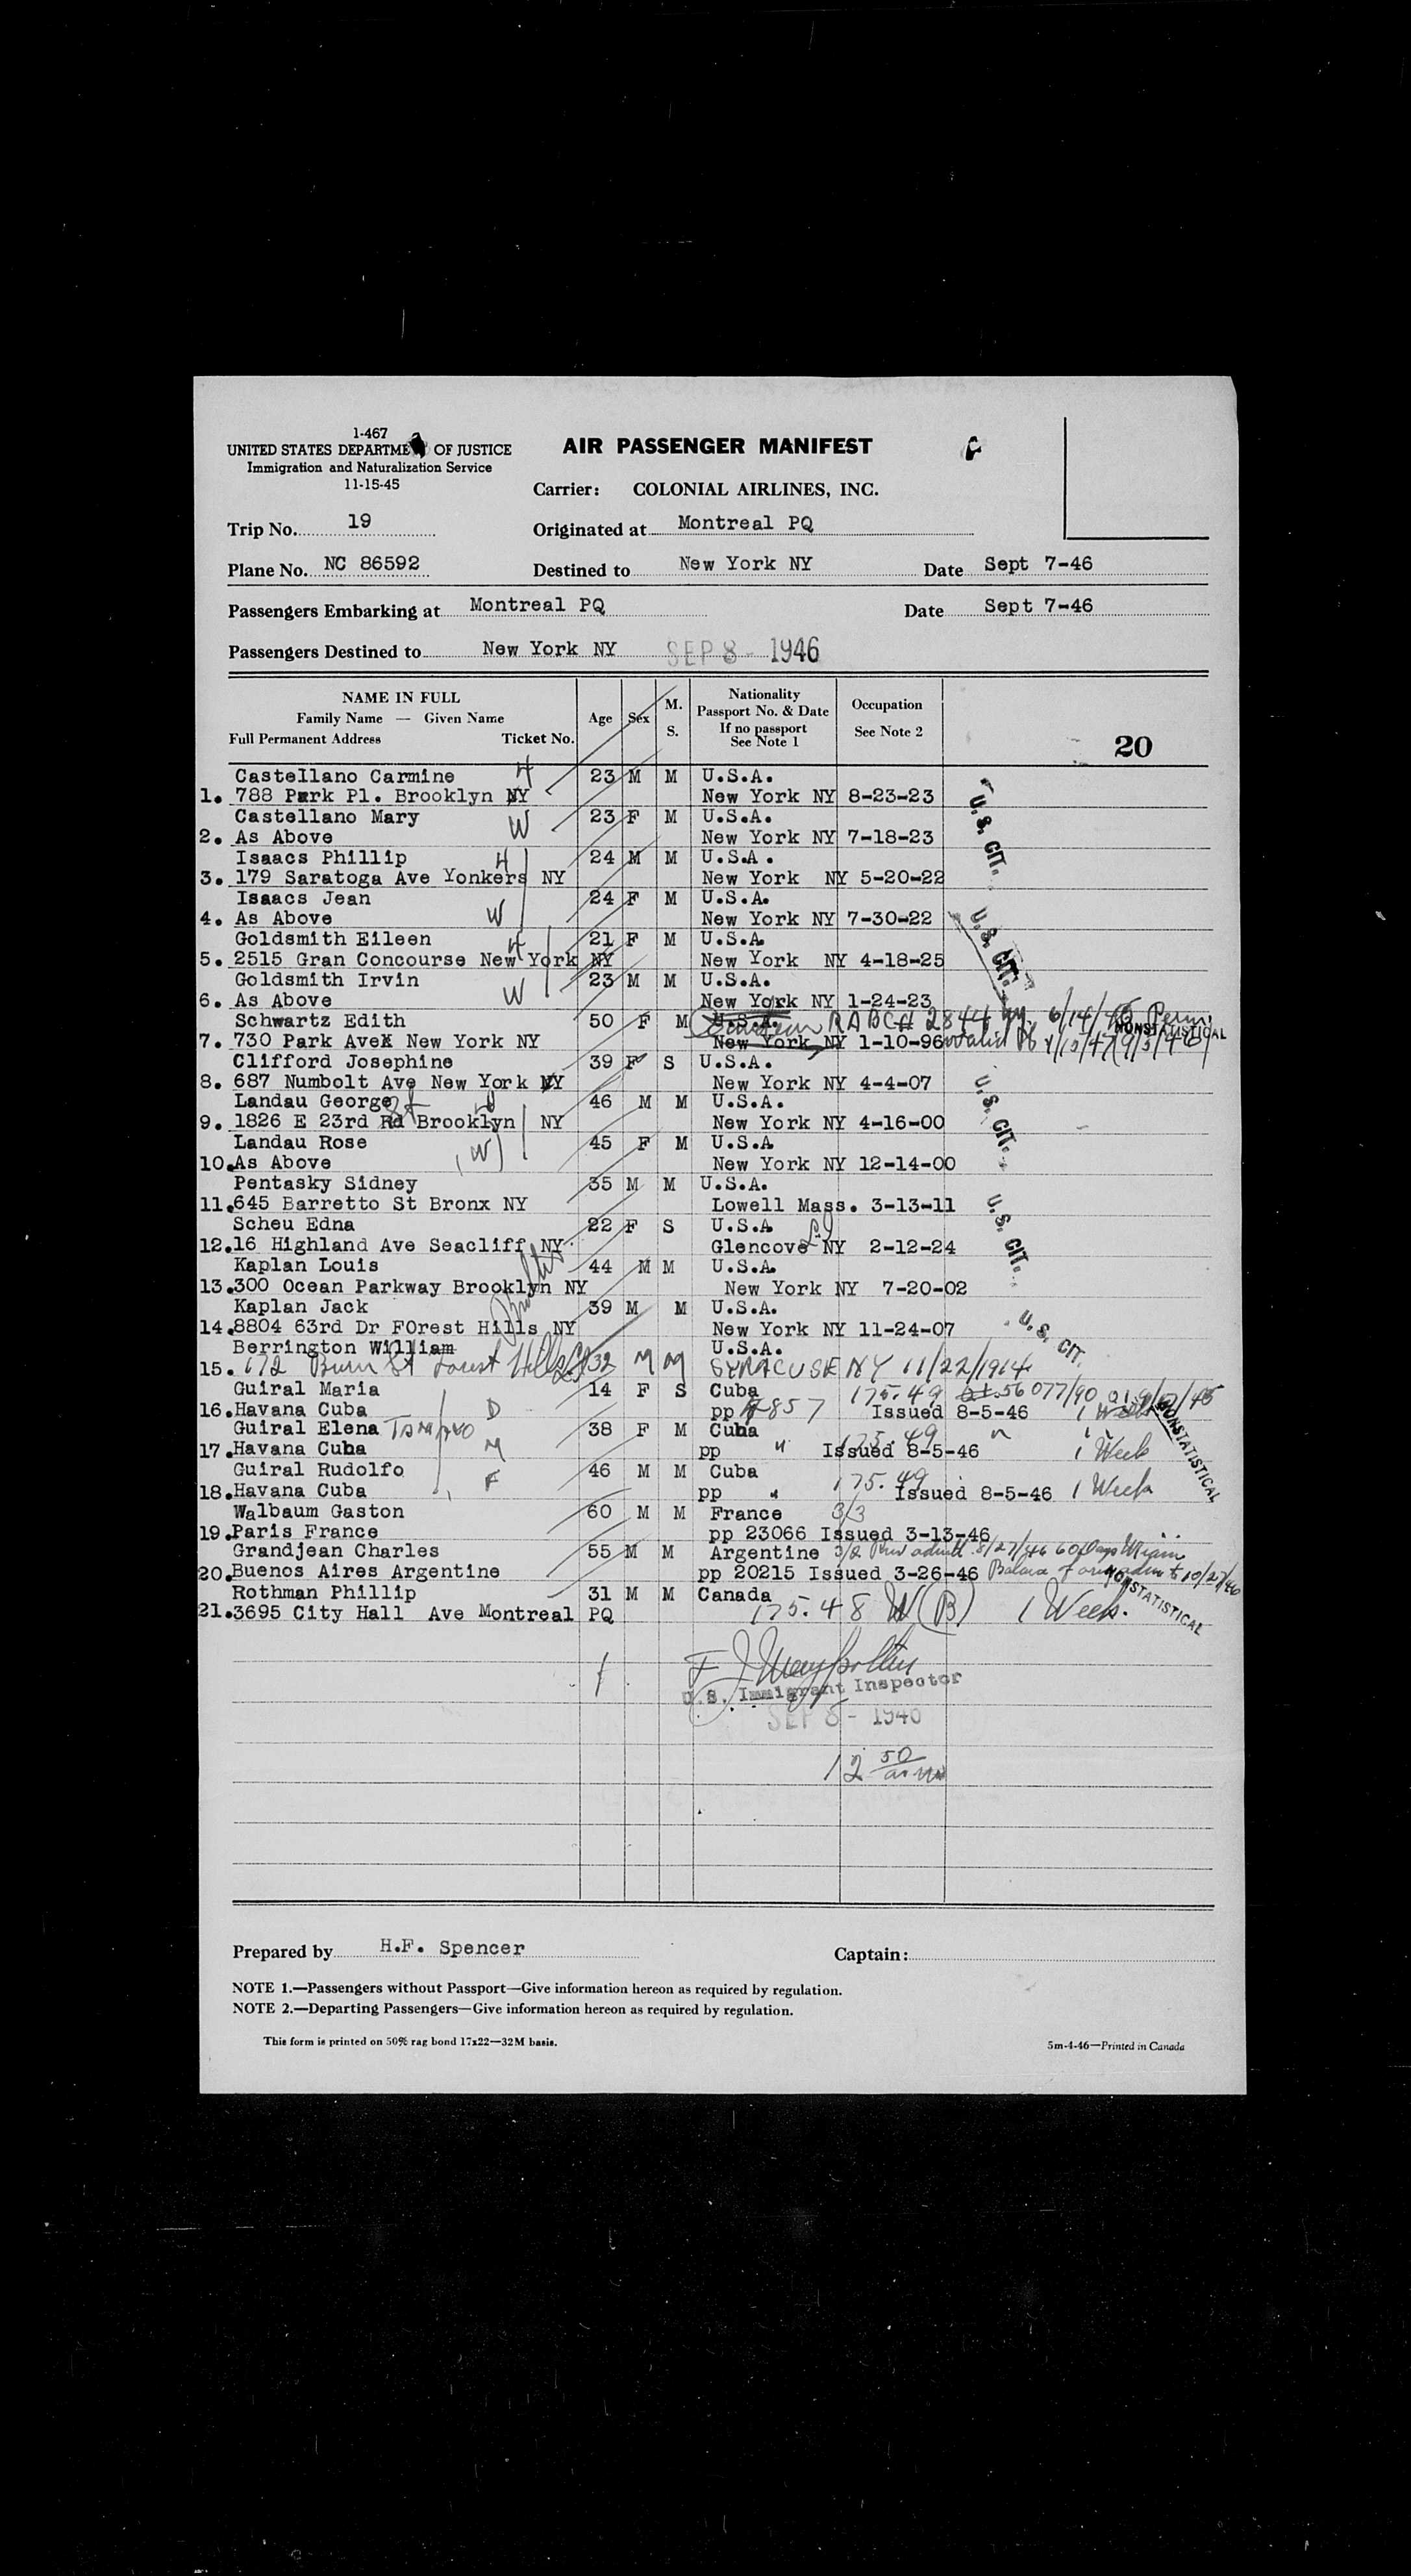 1-467
UNITED STATES DEPARTME OF JUSTICE
Immigration and Naturalization Service
11-15-45
AIR PASSENGER MANIFEST
Carrier: COLONIAL AIRLINES, INC.
Trip No. 19 Originated at Montreal PQ
Plane No. NC 86592 Destined to New York NY Date Sept 7-46
Passengers Embarking at Montreal PQ Date Sept 7-46
Passengers Destined to New York NY SEP 8 - 1946
NAME IN FULL
Family Name — Given Name
Full Permanent Address Ticket No.
Age Sex M. S.
Nationality
Passport No. & Date
If no passport
See Note 1
Occupation
See Note 2
20
Castellano Carmine H 23 M M U.S.A.
1. 788 Park Pl. Brooklyn NY New York NY 8-23-23
Castellano Mary W 23 F M U.S.A.
2. As Above New York NY 7-18-23
U. S. CIT.
Isaacs Phillip H 24 M M U.S.A.
3. 179 Saratoga Ave Yonkers NY New York NY 5-20-22
Isaacs Jean 24 F M U.S.A.
4. As Above W New York NY 7-30-22
U. S. CIT.
Goldsmith Eileen H 21 F M U.S.A
5. 2515 Gran Concourse New York NY New York NY 4-18-25
Goldsmith Irvin 23 M M U.S.A.
6. As Above W New York NY 1-24-23
Schwartz Edith 50 F M U.S.A. RABC# 2844 6/14/46 Perm.
7. 730 Park AveX New York NY New York NY 1-10-96 NONSTATISTICAL
Clifford Josephine 39 F S U.S.A.
8. 687 Numbolt Ave New York NY New York NY 4-4-07
Landau George 46 M M U.S.A.
9. 1826 E 23rd Rd St Brooklyn NY New York NY 4-16-00
U. S. CIT.
Landau Rose 45 F M U.S.A
10. As Above (W) New York NY 12-14-00
Pentasky Sidney 35 M M U.S.A.
11. 645 Barretto St Bronx NY Lowell Mass. 3-13-11
Scheu Edna 22 F S U.S.A
12. 16 Highland Ave Seacliff NY Glencove NY 2-12-24
U. S. CIT.
Kaplan Louis 44 M M U.S.A.
13. 300 Ocean Parkway Brooklyn NY New York NY 7-20-02
Kaplan Jack 39 M M U.S.A.
14. 8804 63rd Dr FOrest Hills NY New York NY 11-24-07
U. S. CIT.
Berrington William U.S.A.
15. 172 St Forest Hills 32 M M SYRACUSE NY 11/22/1914
Guiral Maria 14 F S Cuba 175.49
16. Havana Cuba D pp Issued 8-5-46 1 Week
Guiral Elena 38 F M Cuba 175.49
17. Havana Cuba M pp " Issued 8-5-46 1 Week
NONSTATISTICAL
Guiral Rudolfo 46 M M Cuba 175.49
18. Havana Cuba F pp " Issued 8-5-46 1 Week
Walbaum Gaston 60 M M France 3/3
19. Paris France pp 23066 Issued 3-13-46
Grandjean Charles 55 M M Argentine 3/2 8/27/46 60 Days Miami
20. Buenos Aires Argentine pp 20215 Issued 3-26-46 Balance of to 10/27/46
Rothman Phillip 31 M M Canada
21. 3695 City Hall Ave Montreal PQ 175.48 (B) 1 Week.
NONSTATISTICAL
U.S. Immigrant Inspector
SEP 8 - 1946
12 50
Prepared by H.F. Spencer Captain:
NOTE 1.—Passengers without Passport—Give information hereon as required by regulation.
NOTE 2.—Departing Passengers—Give information hereon as required by regulation.
This form is printed on 50% rag bond 17x22—32M basis.
5m-4-46—Printed in Canada